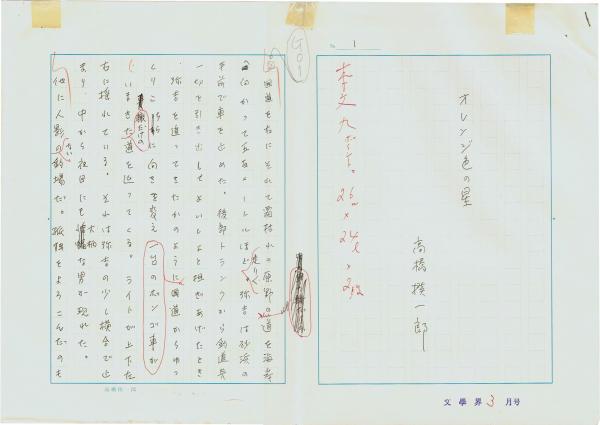 1
No. 1
オレンジ色の星
高橋揆一郎
本文 九ポ 26w × 24l × 2段
文學界 3 月号
G01
国道を右にそれて霜枯れの原野の道を海辺
へ向かって五百メートルほど走り、弥吉は砂浜の
手前で車を止めた。後部トランクから釣道具
一切を引き出して よいしょと担ぎあげたとき
弥吉を追ってきたかのように国道からゆっ
くりこ 向きを変え 一台のポンコツ車が
いまきた 轍だけの 道を辿ってくる。ライトが上下左
右に揺れている。それは弥吉の少し横合で止
まり、中から夜目にも 大柄 な男が現れた。
他に人影のない釣場だ。孤独をよろこんだのも
高橋揆一郎